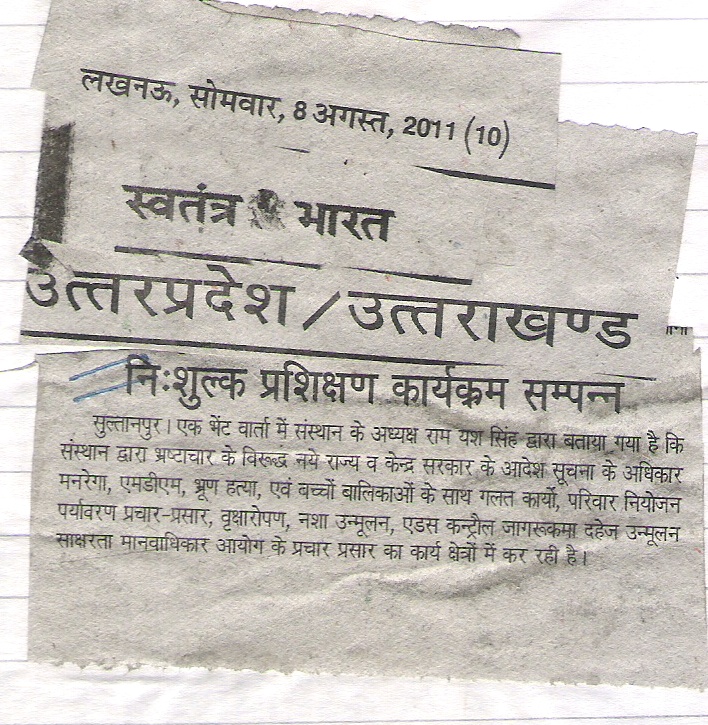 लखनऊ, सोमवार, 8 अगस्त, 2011 (10)
स्वतंत्र भारत
उत्तरप्रदेश / उत्तराखण्ड
निःशुल्क प्रशिक्षण कार्यक्रम सम्पन्न
सुल्तानपुर। एक भेंट वार्ता में संस्थान के अध्यक्ष राम यश सिंह द्वारा बताया गया है कि
संस्थान द्वारा भ्रष्टाचार के विरूद्ध नये राज्य व केन्द्र सरकार के आदेश सूचना के अधिकार
मनरेगा, एमडीएम, भ्रूण हत्या, एवं बच्चों बालिकाओं के साथ गलत कार्यो, परिवार नियोजन
पर्यावरण प्रचार-प्रसार, वृक्षारोपण, नशा उन्मूलन, एडस कन्ट्रौल जागरूकमा दहेज उन्मूलन
साक्षरता मानवाधिकार आयोग के प्रचार प्रसार का कार्य क्षेत्रों में कर रही है।